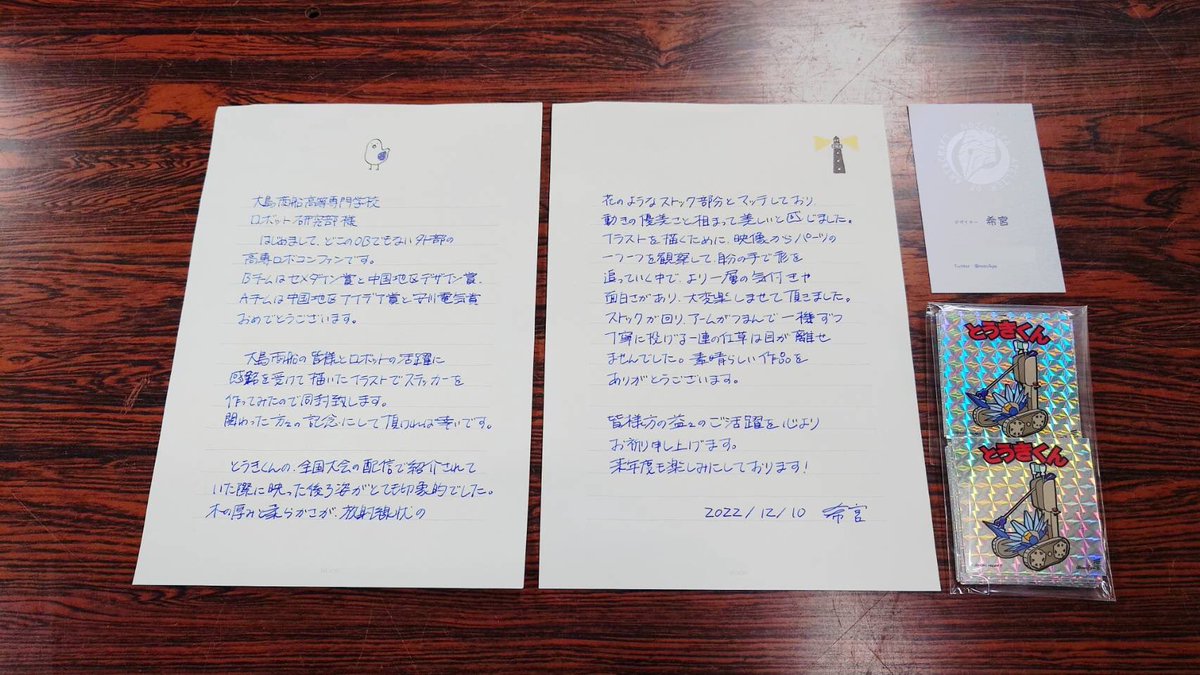 大島商船高等専門学校
ロボット研究部 様
はじめまして、どこのOBでもない外部の
高専ロボコンファンです。
Bチームはセメダイン賞と中国地区デザイン賞、
Aチームは中国地区アイデア賞と安川電気賞
おめでとうございます。
大島商船の皆様とロボットの活躍に
感銘を受けて描いたイラストでステッカーを
作ってみたので同封致します。
関わった方々の記念にして頂ければ幸いです。
とうきくんの、全国大会の配信で紹介されて
いた際に映った後ろ姿がとても印象的でした。
木の厚みと柔らかさが、放射線状の
花のようなストック部分とマッチしており
動きの優美さと相まって美しいと感じました。
イラストを描くために、映像からパーツの
一つ一つを観察して、自分の手で形を
追っていく中で、より一層の気付きや
面白さがあり、大変楽しませて頂きました。
ストックが回り、アームがつまんで一機ずつ
丁寧に投げる一連の仕草は目が離せ
ませんでした。素晴らしい作品を
ありがとうございます。
皆様方の益々のご活躍を心より
お祈り申し上げます。
来年度も楽しみにしております!
2022/12/10 希宮
デザイナー 希宮
とうきくん
とうきくん